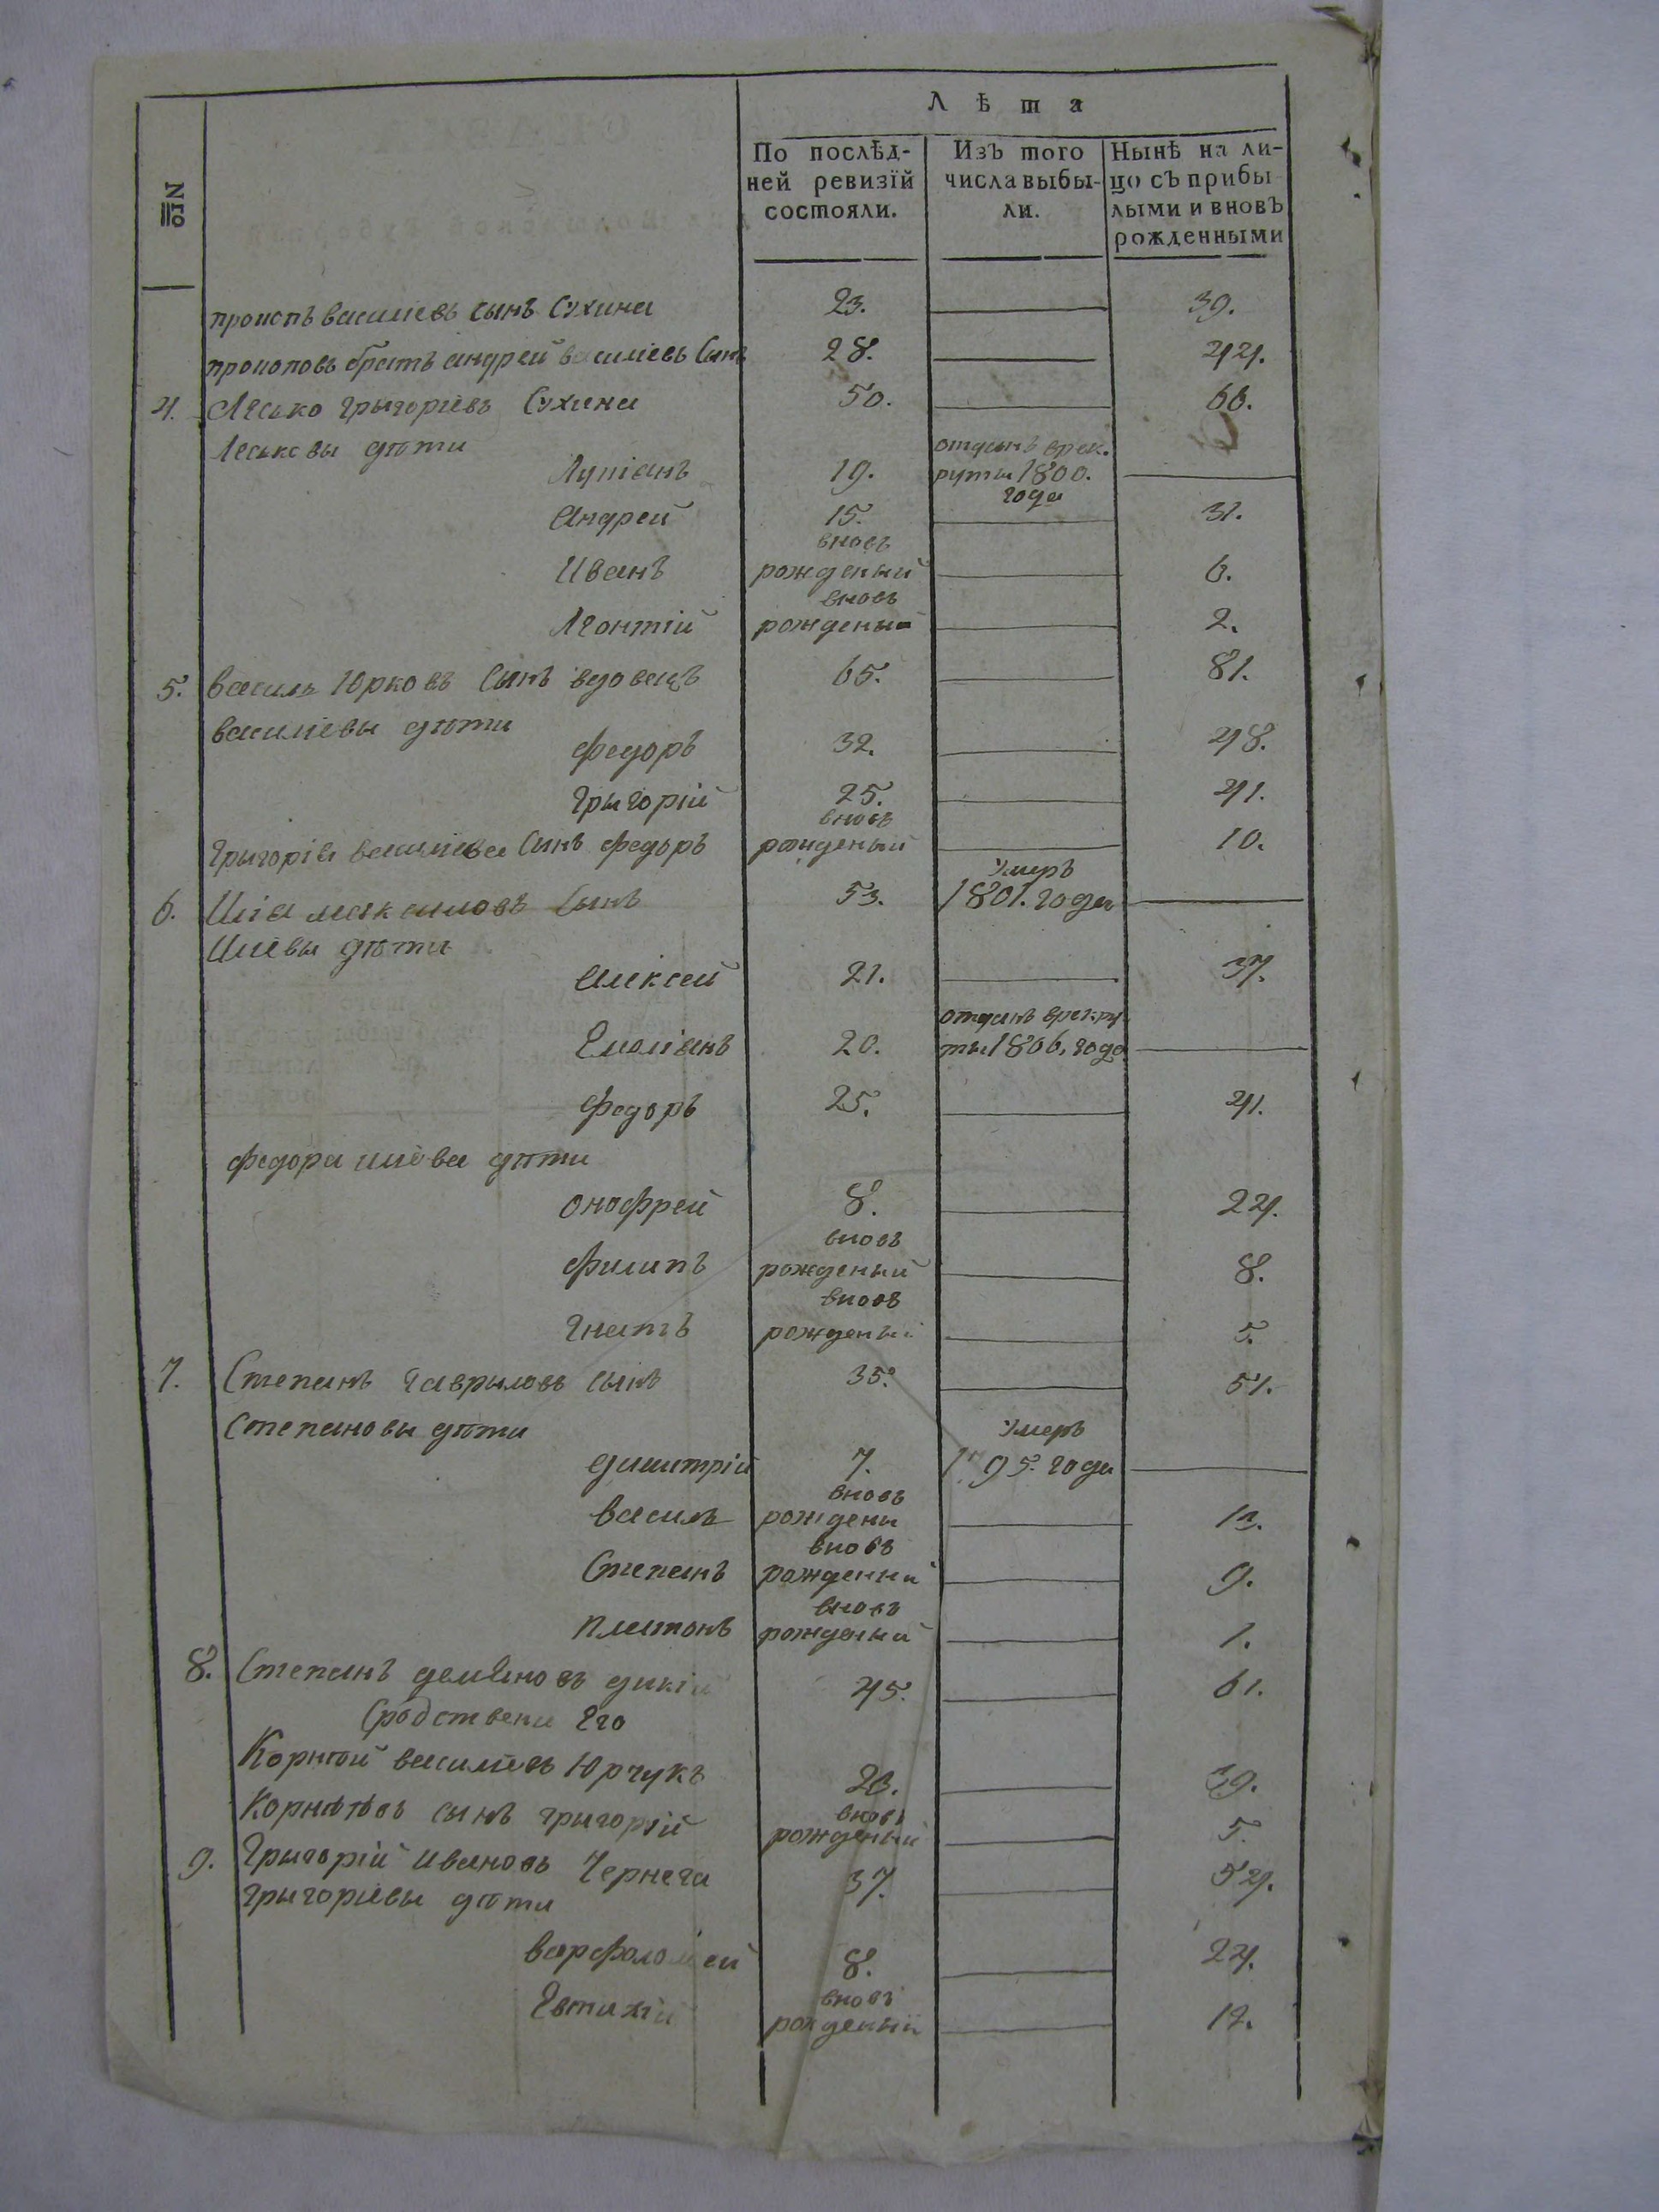 Лѣта
№
По послѣд-
ней ревизїй
состояли.
Изъ того
числа выбы-
ли.
Нынѣ на ли-
цо съ прибы
лыми и вновь
рожденными
прокопъ василіевъ сынъ Сухина 23. 39.
прокоповъ братъ андрей василіевъ Сынъ 28. 44.
4. Лесько григоріевъ Сухина 50. 66.
Леськовы дѣти
Лупіанъ 19. отданъ врек.
руты 1800.
года
Андрей 15. 31.
Иванъ вновь
рожденый 6.
Леонтій вновь
рожденый 2.
5. василь Юрковъ Сынъ вдовецъ 65. 81.
василіевы дѣти
Федоръ 32. 48.
григорій 25. 41.
григорія василіева Сынъ федоръ вновь
рожденый 10.
6. Илія максимовъ Сынъ 53. Умеръ
1801. года
Иліевы дѣти
алексей 21. 37.
Емоліанъ 20. отданъ врекру
ты 1806, года
Федоръ 25. 41.
федора иліева дѣти
онофрей 8. 24.
филипъ вновь
рожденый 8.
гнатъ вновь
рожденый 5.
7. Степанъ гаврыловъ сынъ 35. 51.
Степановы дѣти
димитрій 7. Умеръ
1795. года
василь вновь
рождены 13.
Степанъ вновь
рожденны 9.
платонъ вновь
рожденый 1.
8. Степанъ демяновъ дикій 45. 61.
Сродствени Его
Корнѣй василіевъ Юрчукъ 23. 39.
Корнѣѣвъ сынъ григорій вновь
рожденый 5.
9. Григорій ивановъ Чернега 37. 54.
григоріевы дѣти
варфоломей 8. 24.
Евтихій вновь
рожденый 12.